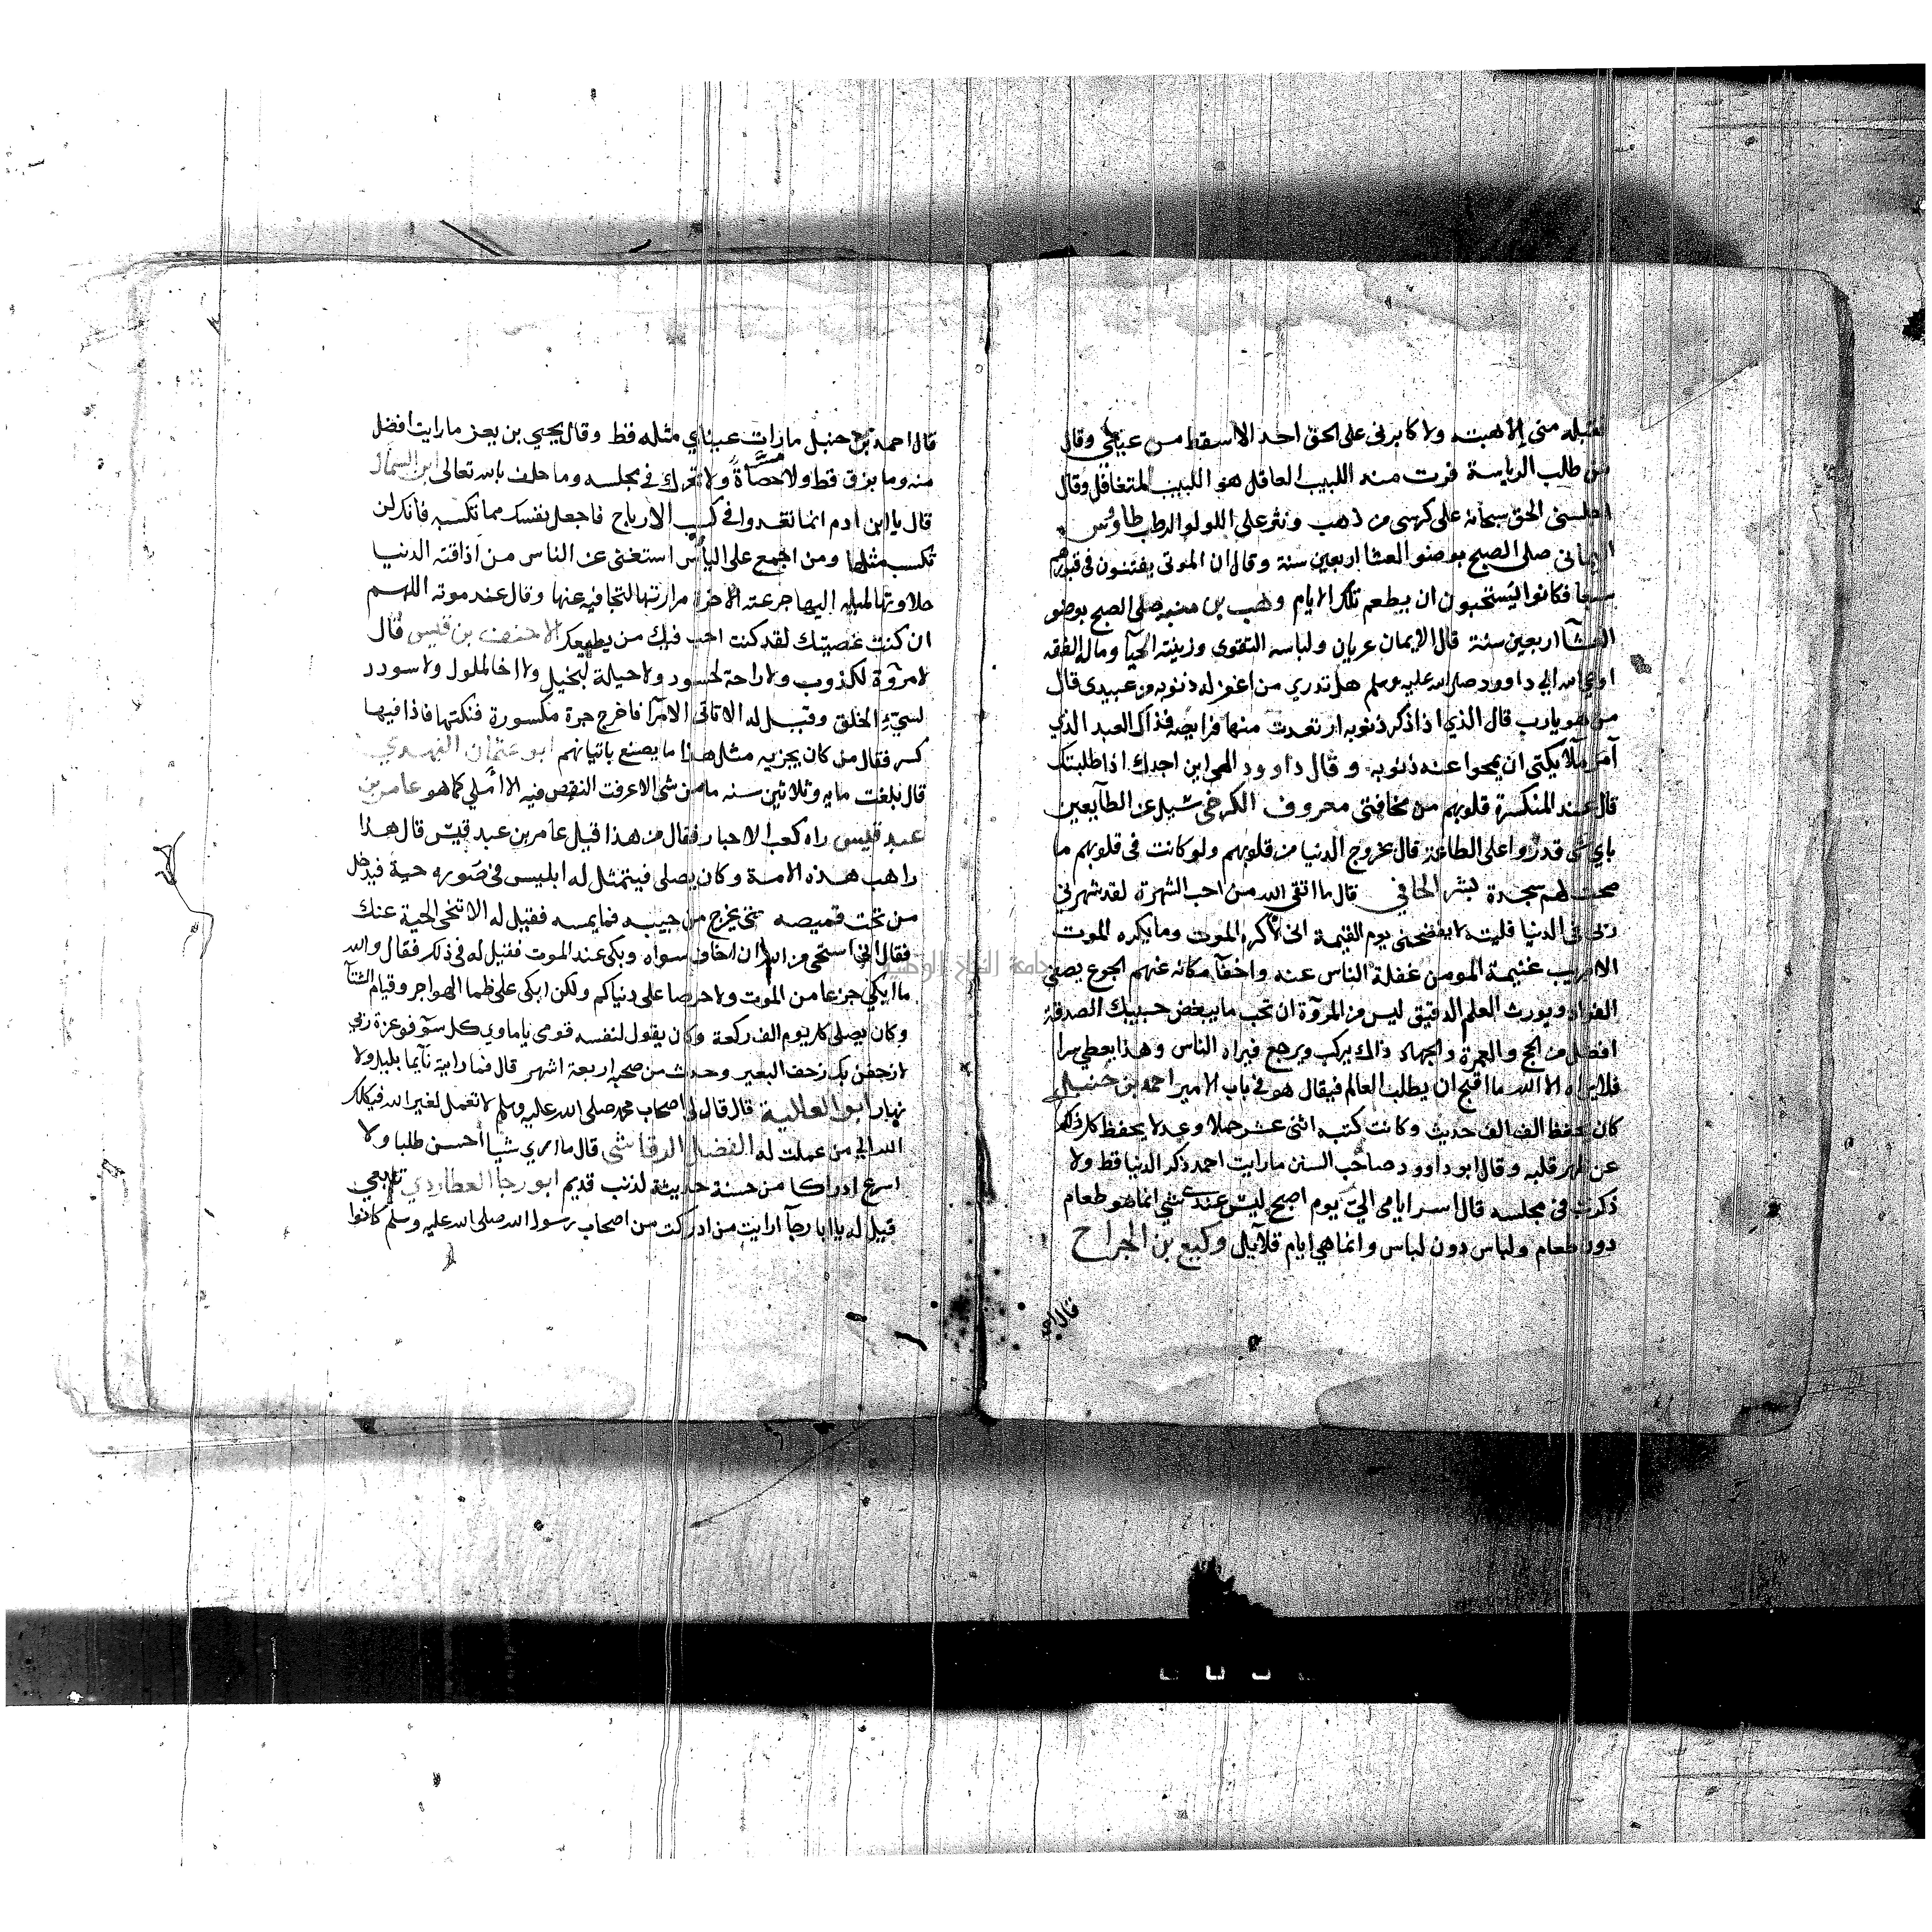 فقبله مني الا هبته ولا كابرني على الحق احد الا سقط من عيني وقال
من طلب الرياسة فرت منه اللبيب العاقل هو اللبيب المتغافل وقال
اجلسني الحق سبحانه على كرسي من ذهب ونثر على اللولو الرطب طاوس
اليماني صلى الصبح بوضو العشا اربعين سنة وقال ان الموتى يفتنون في قبورهم
سبعا فكانوا يستحبون ان يطعم تلك الايام وهب بن منبه صلى الصبح بوضو
العشآ اربعين سنة قال الايمان عريان ولباسه التقوى وزينته الحيآ وماله الفقه
اوحى الله الي داوود صلى الله عليه وسلم هل تدري من اغفر له ذنوبه من عبيدى قال
من هو يارب قال الذي اذا ذكر ذنوبه ارتعدت منها فرايصه فذاك العبد الذي
آمر ملآيكتي ان يمحوا عنه ذنوبه وقال داوود الهي اين اجدك اذا طلبتك
قال عند المنكسرة قلوبهم من مخافتي معروف الكرخي سيل عن الطآيعين
باي شي قدروا على الطاعة قال بخروج الدنيا من قلوبهم ولو كانت في قلوبهم ما
صحت لهم سجدة بشر الحافي قال ما اتقى الله من احب الشهرة لقد شهرني
ربي في الدنيا فليته لا يفضحني يوم القيمة اني لاكره الموت وما يكره الموت
الا مريب غنيمة المومن غفلة الناس عنه واخفآ مكانه عنهم الجوع يصفي
الفواد ويورث العلم الدقيق ليس من المروّة ان تحب ما يبغض حبيبك الصدقة
افضل من الحج والعمرة والجهاد ذالك يركب ويرجع فيراه الناس وهذا يعطي سرا
فلا يراه الا الله ما اقبح ان يطلب العالم فيقال هو في باب الامير احمد بن حنبل
كان يحفظ الف الف حديث وكانت كتبه اثنى عشر حملا وعدلا يحفظ كل ذلك
عن ظهر قلبه وقال ابو داوود صاحب السنن ما رايت احمد ذكر الدنيا قط ولا
ذكرت في مجلسه قال اسر ايامي الي يوم اصبح ليس عندي شي انما هو طعام
دون طعام ولباس دون لباس وانما هي ايام قلآيل وكيع بن الجراح
قال احمد
قال احمد بن حنبل ما رات عيناي مثله قط وقال يحيي بن يعز ما رايت افضل
منه وما بزق قط ولا مسّ حصاةً ولا تحرك في مجلسه وما حلف بالله تعالى ابن السماك
قال يا ابن ادم انما تغدوا في كسب الارباح فاجعل نفسك مما تكسبه فانك لن
تكسب مثلها ومن اجمع على اليأس استغنى عن الناس من اذاقته الدنيا
حلاوتها لميله اليها جرعته الاخرة مرارتها لتجافيه عنها وقال عند موته اللهم
ان كنت عصيتك لقد كنت احب فيك من يطيعك الاحنف بن قيس قال
لا مروّة لكذوب ولا راحة لحسود ولا حيلة لبخيل ولا اخا لملول ولا سودد
لسيّء الخلق وقيل له الا تاتي الامرآ فاخرج جرة مكسورة فنكتها فاذا فيها
كسر فقال من كان يجزيه مثل هذا ما يصنع باتيانهم ابو عثمان النهدي
قال بلغت مايه وثلاثين سنه ما من شي الا عرفت النقص فيه الا املي كما هو عامر بن
عبد قيس راه كعب الاحبار فقال من هذا قيل عامر بن عبد قيس قال هذا
راهب هذه الامة وكان يصلي فيتمثل له ابليس في صوره حية فيدخل
من تحت قميصه حتى يخرج من جيبه فما يمسه فقيل له الا تنحي الحية عنك
فقال اني استحي من الله ان اخاف سواه وبكى عند الموت فقيل له في ذلك فقال والله
ما ابكي جزعا من الموت ولا حرصا على دنياكم ولكن ابكى على ظما الهواجر وقيام الشتآ
وكان يصلي كل يوم الف ركعة وكان يقول لنفسه قومى يا ماوي كل سوّ فوعزة ربي
لازحفن بك زحف البعير وحدث من صحبه اربعة اشهر قال فما رايته نآيما بليل ولا
نهار ابو العالية قال قال لي اصحاب محمد صلى الله عليه وسلم لا تعمل لغير الله فيكلك
الله الي من عملت له الفضل الرقاشى قال ما ارى شيا احسن طلبا ولا
اسرع ادراكا من حسنة حديثة لذنب قديم ابو رجا العطاردي تابعي
قيل له يا ابا رجآ ارايت من ادركت من اصحاب رسول الله صلى الله عليه وسلم كانوا
جامعة النجاح الوطنية